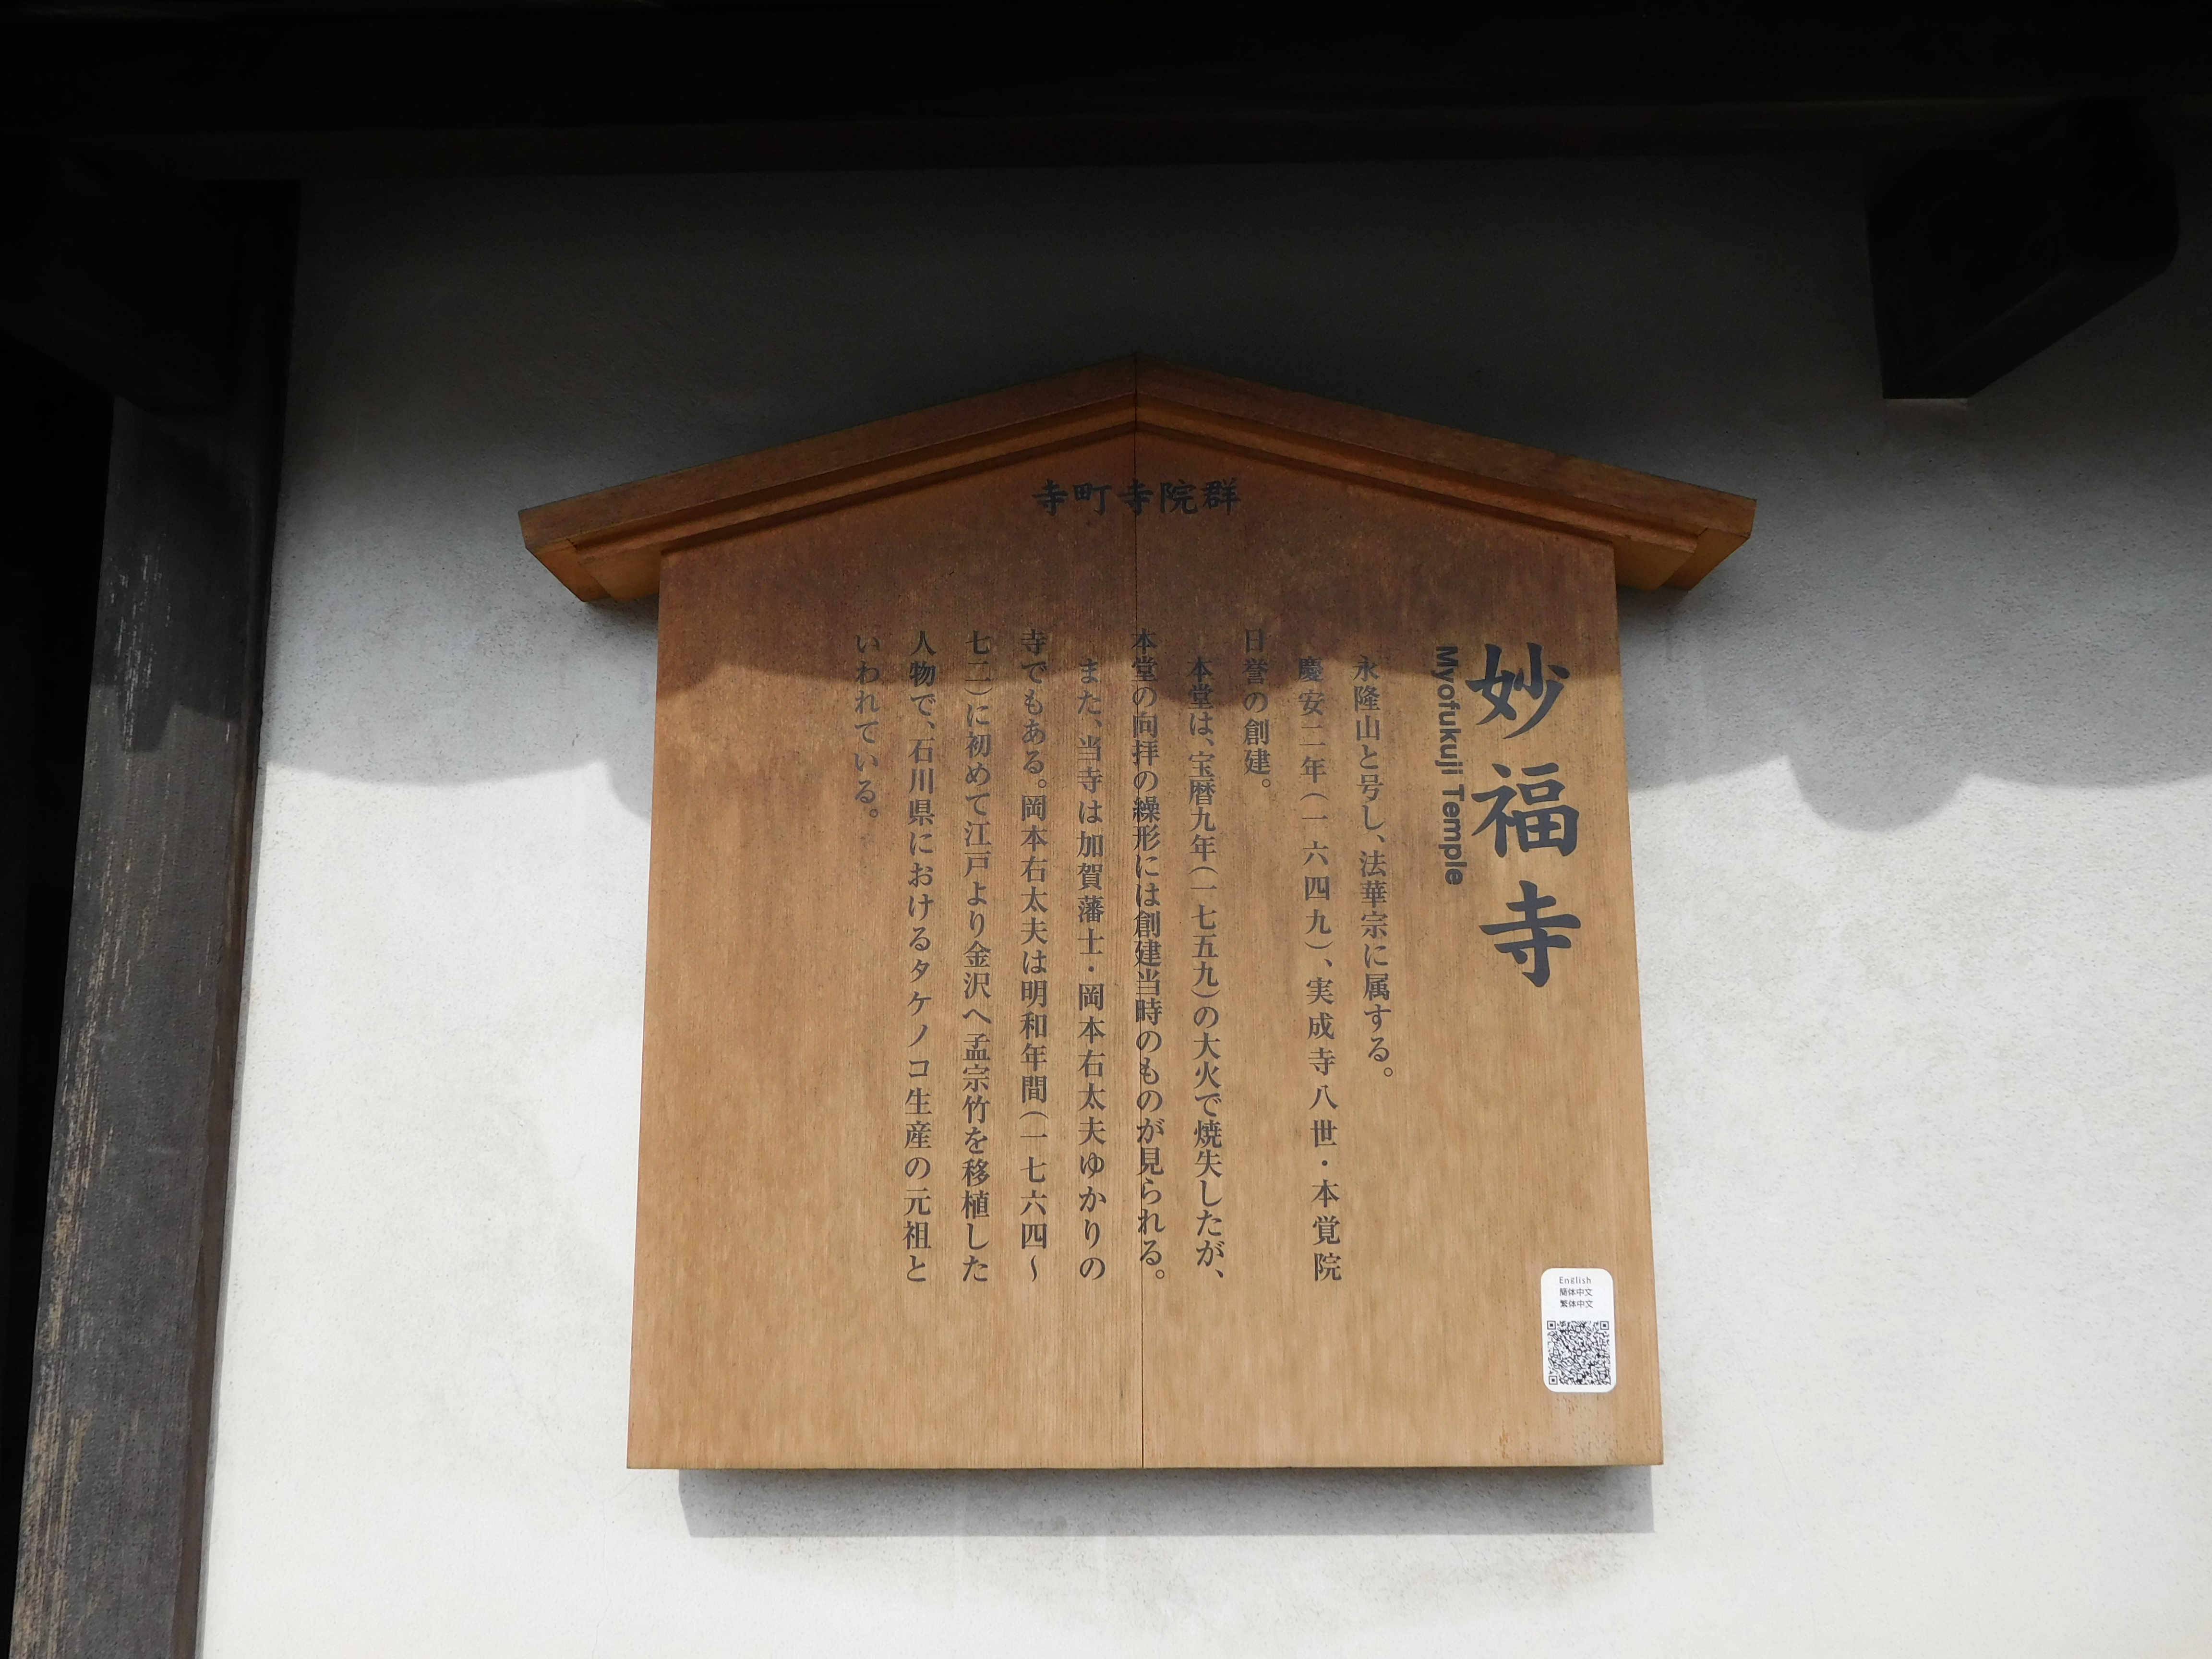 寺町寺院群
妙福寺
Myofukuji Temple
永隆山と号し、法華宗に属する。
慶安二年(一六四九)、実成寺八世・本覚院
日誉の創建。
本堂は、宝暦九年(一七五九)の大火で焼失したが、
本堂の向拝の繰形には創建当時のものが見られる。
また、当寺は加賀藩士・岡本右太夫ゆかりの
寺でもある。岡本右太夫は明和年間(一七六四~
七二)に初めて江戸より金沢へ孟宗竹を移植した
人物で、石川県におけるタケノコ生産の元祖と
いわれている。
English
簡体中文
繁体中文